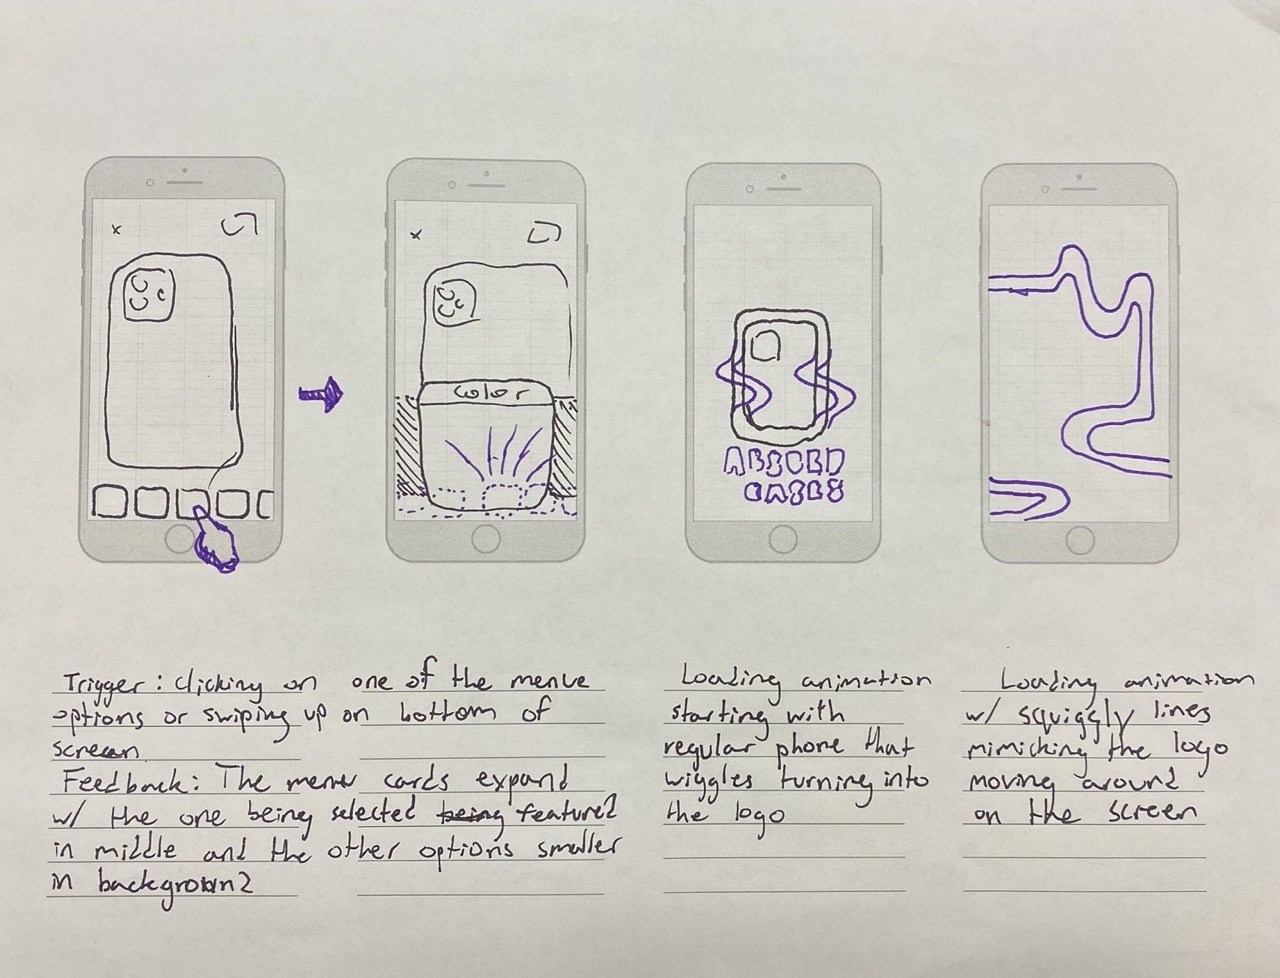 Color
ABSURD
CASES
Trigger: clicking on one of the menue
options or swiping up on bottom of
screen
Feedback: The menu cards expand
w/ the one being selected being featured
in middle and the other options smaller
in background
Loading animation
starting with
regular phone that
wiggles turning into
the logo
Loading animation
w/ squiggly lines
mimicking the logo
moving around
on the screen